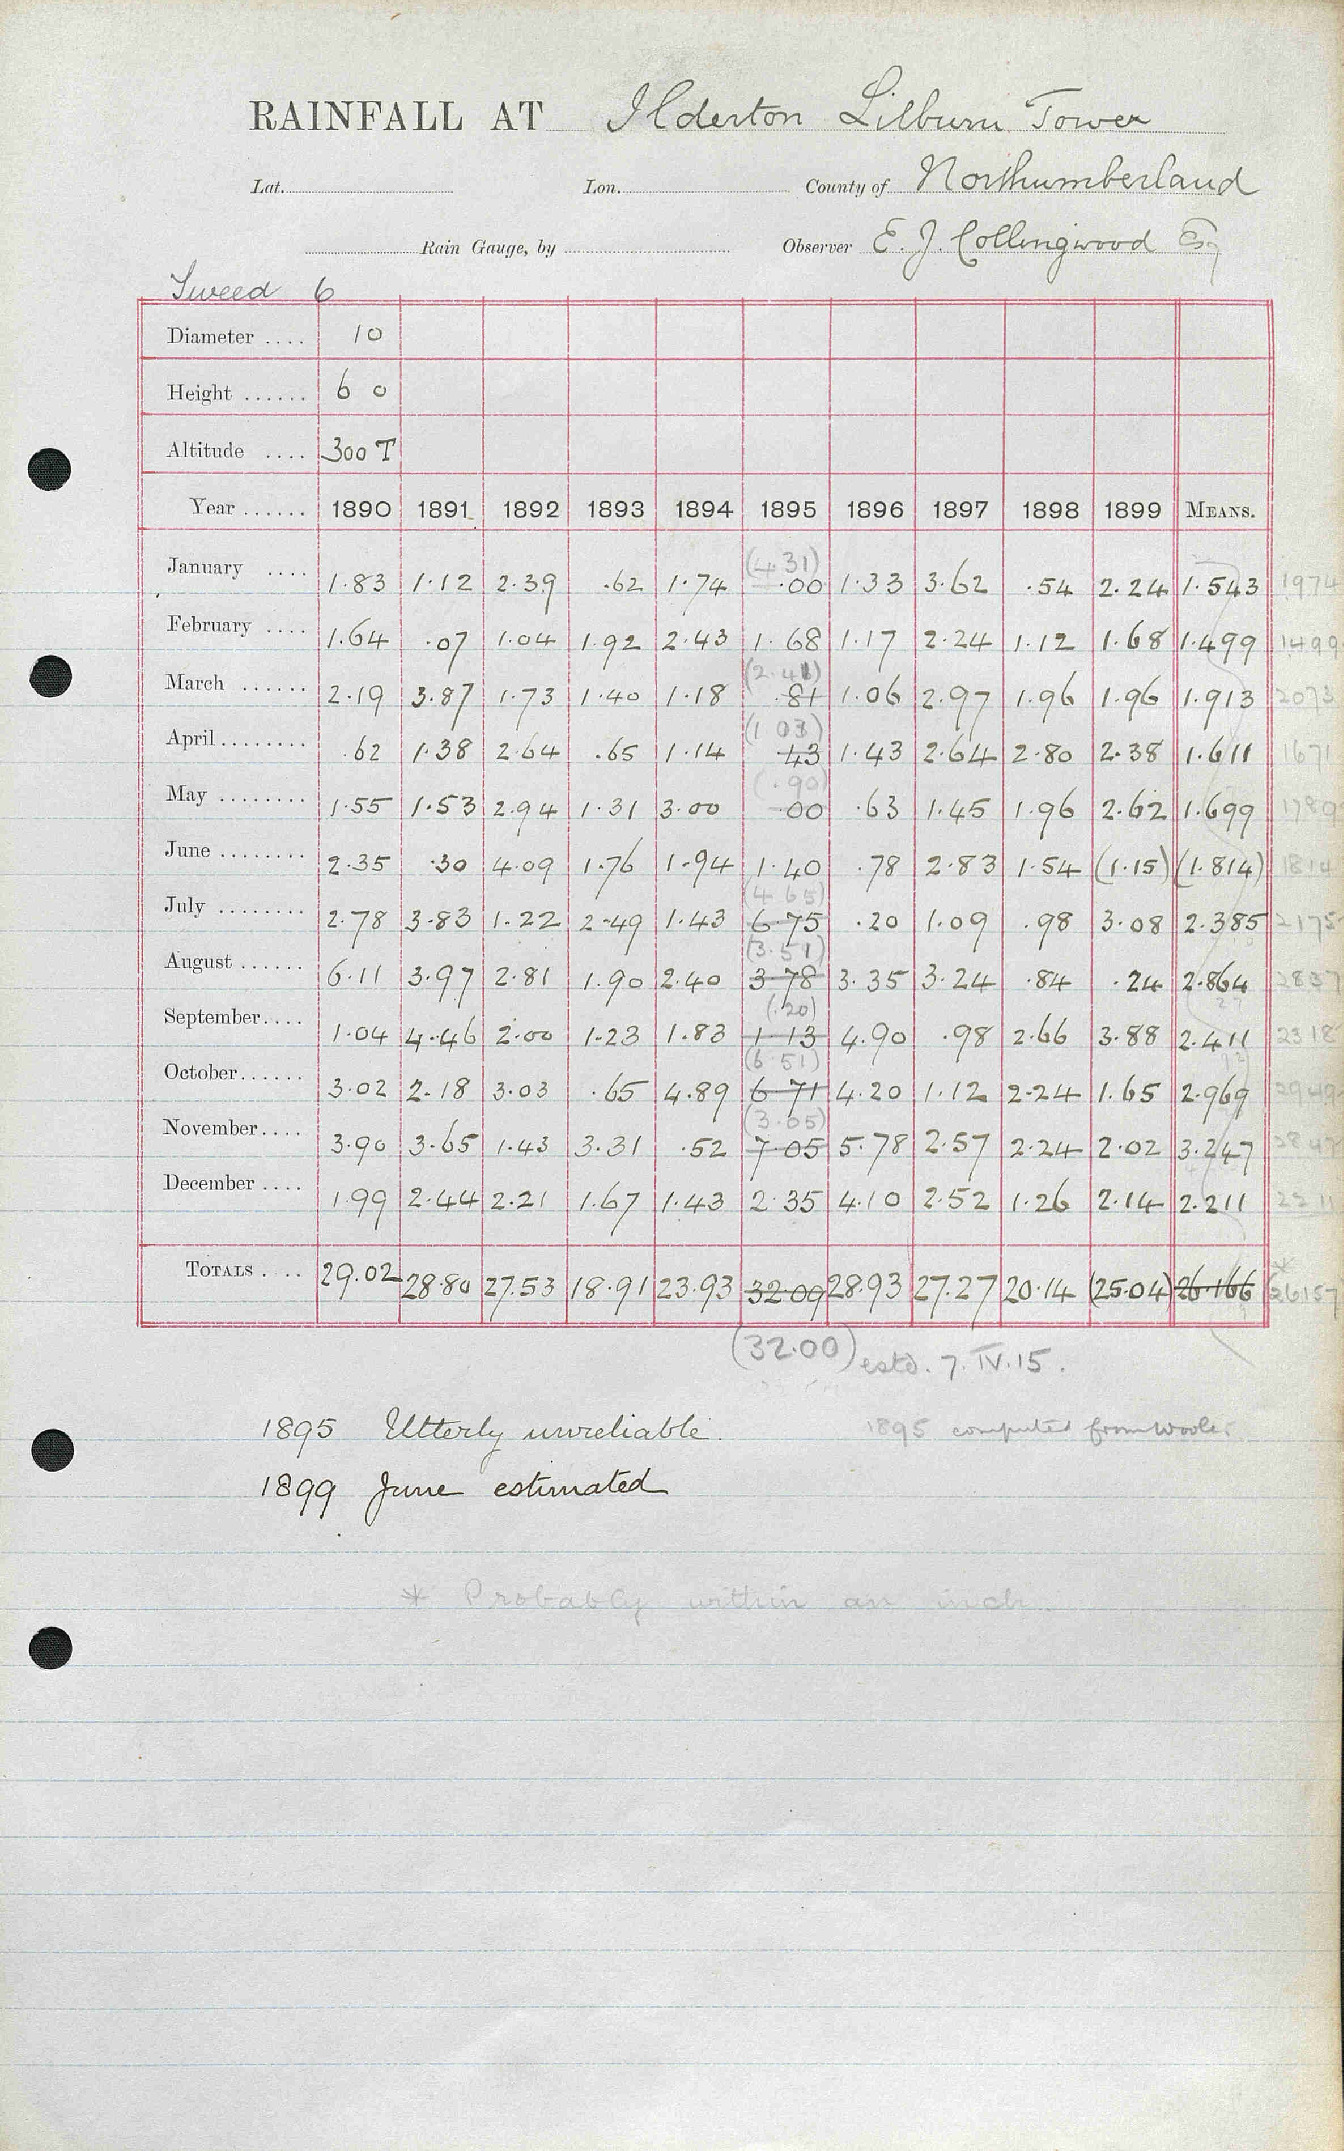 RAINFALL AT Ilderton Lilburn Tower
Lat. Lon. County of Northumberland
Rain Gauge, by Observer E. J. Collingwood Esq
Tweed 6
Diameter .... 10
Height ...... 6 0
Altitude .... 300 T
Year ...... 1890 1891 1892 1893 1894 1895 1896 1897 1898 1899 MEANS.
(4 31)
January .... 1.83 1.12 2.39 .62 1.74 .00 1.33 3.62 .54 2.24 1.543 1974
February .... 1.64 .07 1.04 1.92 2.43 1.68 1.17 2.24 1.12 1.68 1.499 1499
(2.41)
March ...... 2.19 3.87 1.73 1.40 1.18 .81 1.06 2.97 1.96 1.96 1.913 2073
(1 03)
April ........ .62 1.38 2.64 .65 1.14 43 1.43 2.64 2.80 2.38 1.611 1671
(.90)
May ........ 1.55 1.53 2.94 1.31 3.00 .00 .63 1.45 1.96 2.62 1.699 1789
June ........ 2.35 .30 4.09 1.76 1.94 1.40 .78 2.83 1.54 (1.15) (1.814) 1814
(4 65)
July ........ 2.78 3.83 1.22 2.49 1.43 6.75 .20 1.09 .98 3.08 2.385 2175
(3.51)
August ...... 6.11 3.97 2.81 1.90 2.40 3.78 3.35 3.24 .84 .24 2.864 2837
(.20)
September .... 1.04 4.46 2.00 1.23 1.83 1.13 4.90 .98 2.66 3.88 2.411 2318
(6 51)
October ...... 3.02 2.18 3.03 .65 4.89 6 71 4.20 1.12 2.24 1.65 2.969 2949
(3.05)
November .... 3.90 3.65 1.43 3.31 .52 7.05 5.78 2.57 2.24 2.02 3.247 2847
December .... 1.99 2.44 2.21 1.67 1.43 2.35 4.10 2.52 1.26 2.14 2.211 2211
TOTALS .... 29.02 28.80 27.53 18.91 23.93 32.09 28.93 27.27 20.14 (25.04) 26.166 * 26157
(32.00) estd. 7.IV.15.
1895 Utterly unreliable. 1895 computed from Wooler
1899 June estimated
* Probably within an inch.